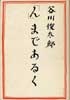 谷川俊太郎
んまであるく